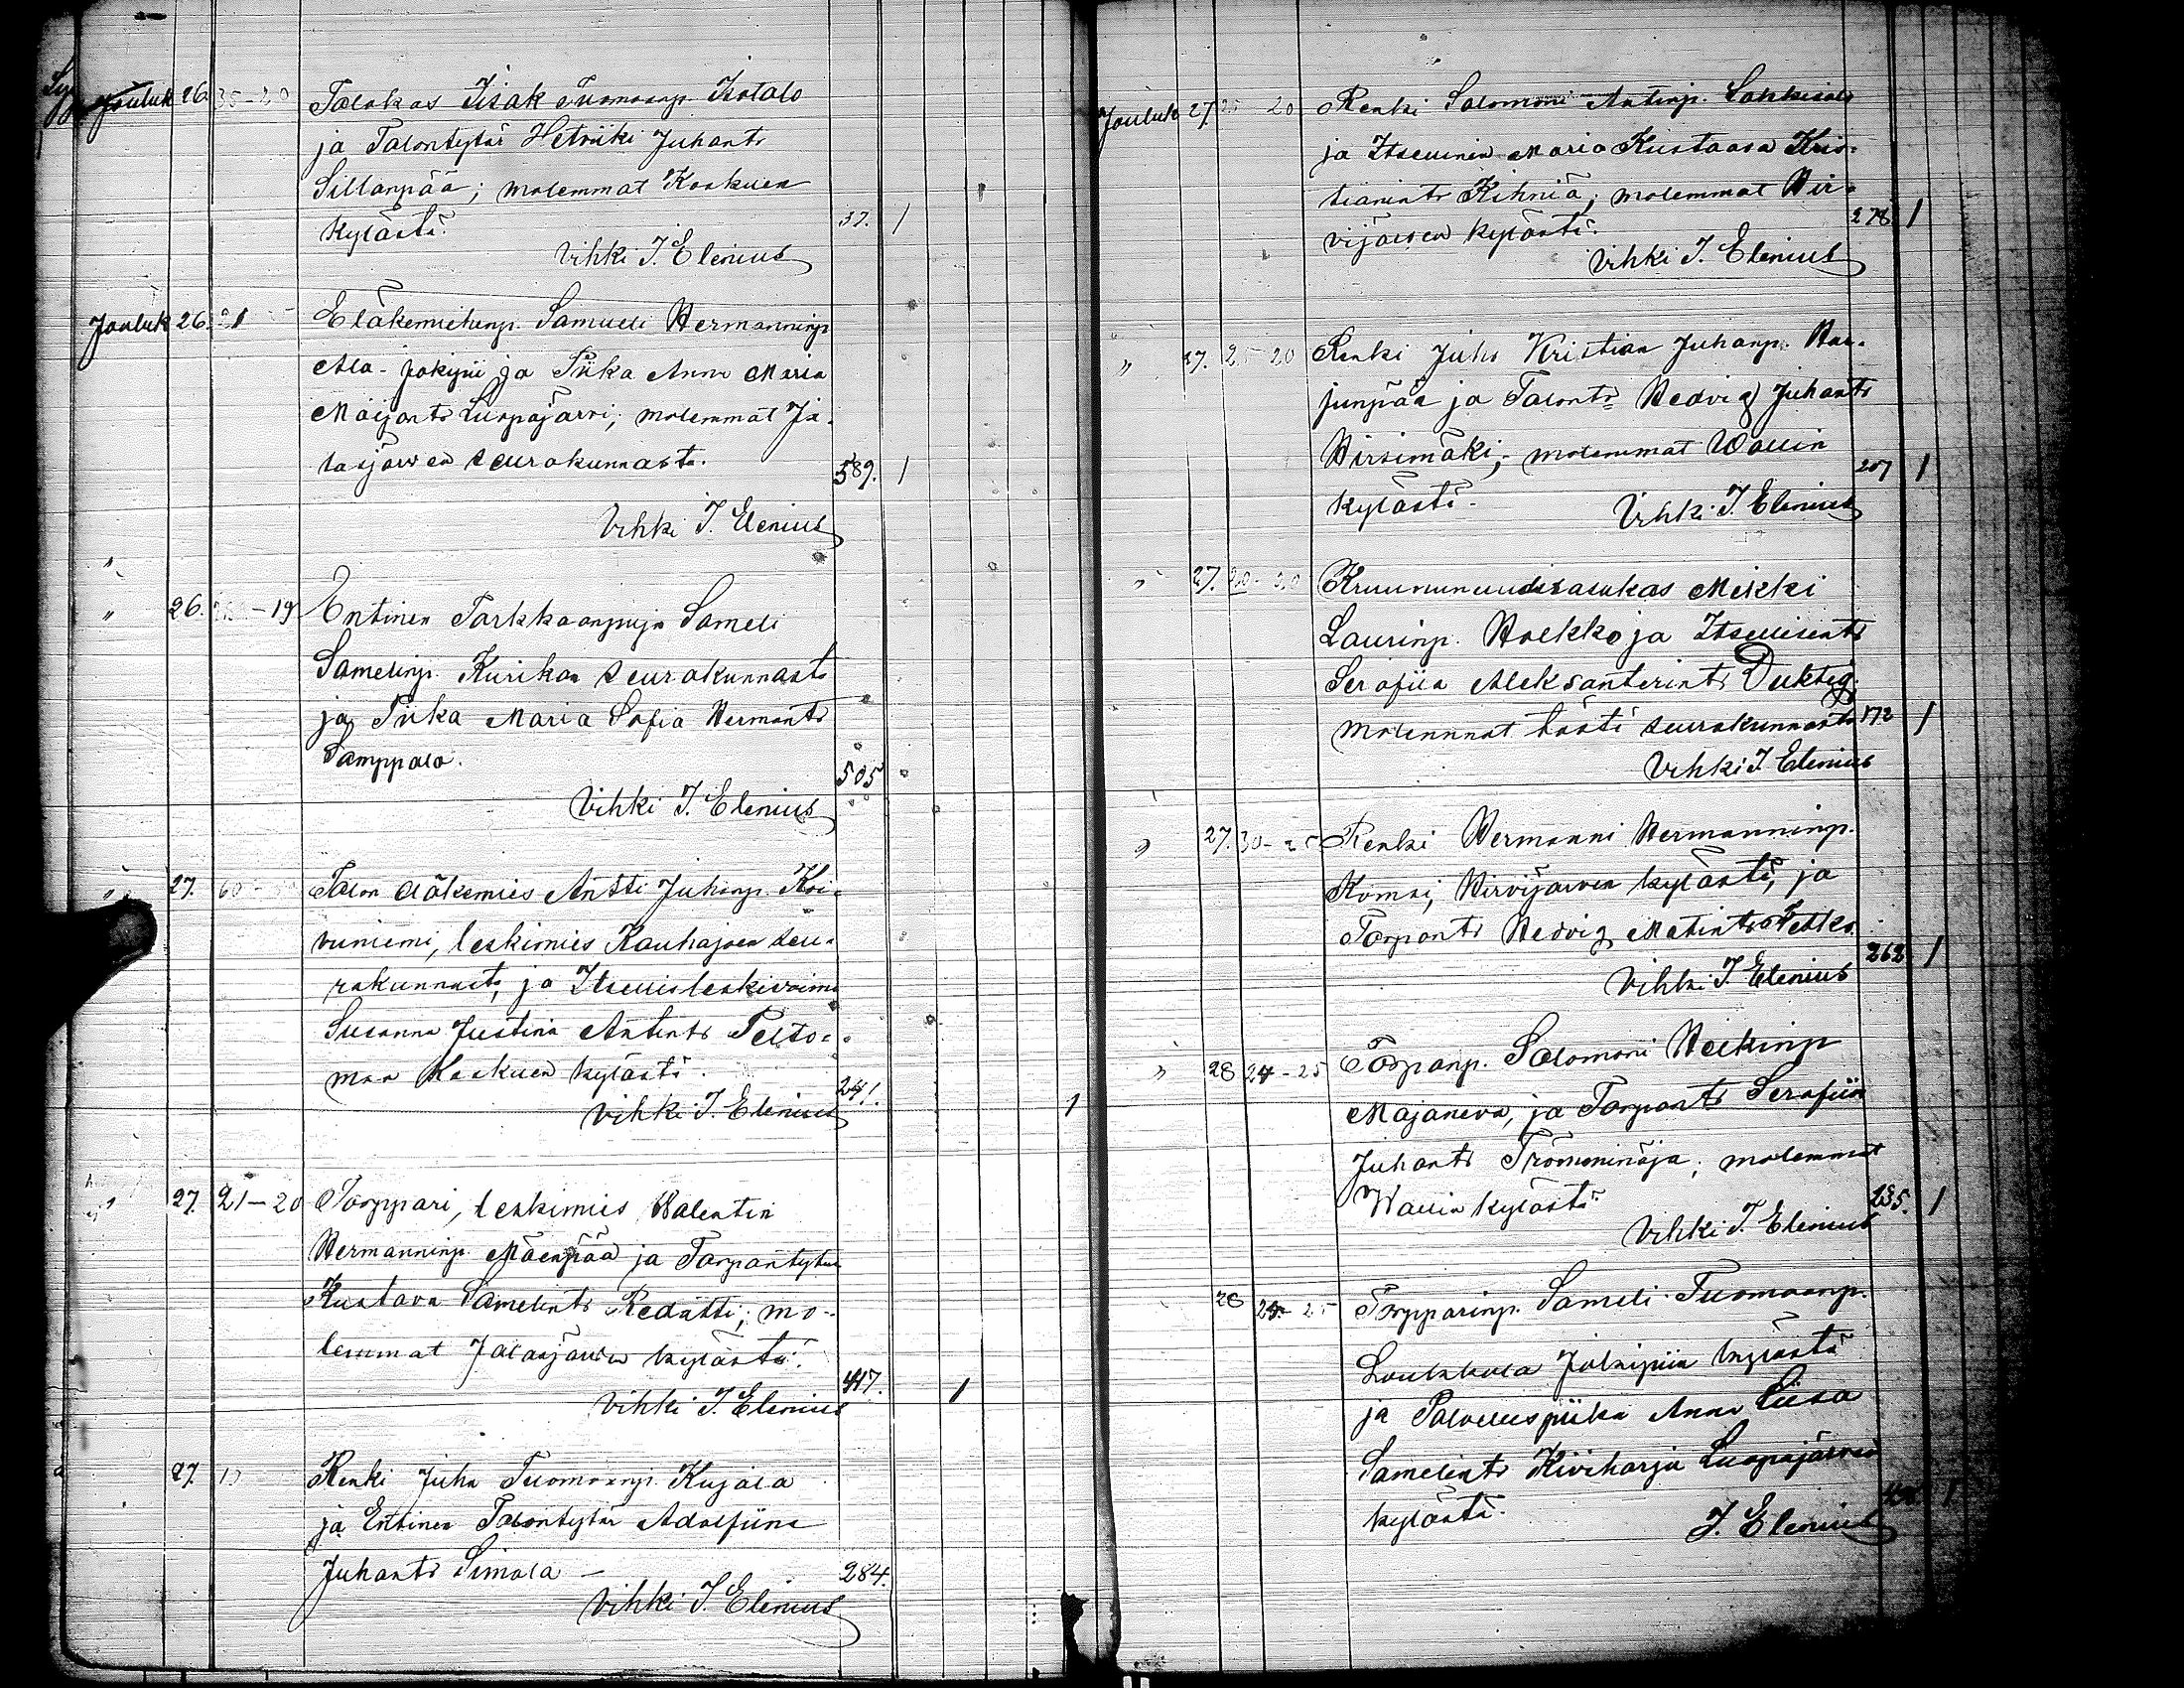 Jouluk 26. 35-20 Talokas Iisak Tuomaanp. Isotalo
ja Talontytär Hetviiki Juhant:
Sillanpää; molemmat Koskuen
kylästä. 37. 1
Vihki J. Elenius
Jouluk 26. 21 Eläkemiehenp. Samueli Hermanninp.
Ala-Jokipii ja Piika Anna Maria
Maijant: Luopajärvi; molemmat Ja-
lasjärven seurakunnasta. 589. 1
Vihki J. Elenius
" 26. -19 Entinen Tarkkaanpuja Sameli
Samelinp. Kurikan seurakunnasta
ja Piika Maria Sofia Hermants
Samppala. 505
Vihki J. Elenius
" 27. 60- Talon eläkemies Antti Juhanp. Koi-
vuniemi, leskimies Kauhajoen seu-
rakunnasta, ja Itsellisleskivaimo
Susanna Justina Antints Pelto-
maa Koskuen kylästä. 241.
Vihki J. Elenius 1
" 27. 21-20 Torppari, leskimies Valentin
Hermanninp. Mäenpää ja Torpantytär
Kustava Samelints Redätti; mo-
lemmat Jalasjärven kylästä. 417. 1
Vihki J. Elenius
27. Renki Juha Tuomaanp. Kujala
ja Entinen Talontytär Adolfiina
Juhants Simola – 284.
Vihki J. Elenius
Jouluk 27. 25 20 Renki Salomoni Antinp.
ja Itsellinen Maria Kustaava Kris-
tianints Kihniä; molemmat Hir-
vijärven kylästä. 278 1
Vihki J. Elenius
" 27. 25-20 Renki Juho Kristian Juhanp. Har-
junpää ja Talonts Hedvig Juhants
Hirsimäki; molemmat Wallin
kylästä. 207 1
Vihki J. Elenius
" 27. 20-20 Kruununuudisasukas Mikki
Laurinp. Holkko ja Itsellisents
Serafiia Aleksanterints Duktig.
molemmat tästä seurakunnasta 172 1
Vihki J. Elenius
" 27. 30-25 Renki Hermanni Hermanninp.
Komsi, Hirvijärven kylästä, ja
Torpants Hedvig Matints 262 1
Vihki J. Elenius
" 28 24-25 Torpanp. Salomoni Heikinp
Majaneva, ja Torpants Serafiia
Juhants; molemmat
Wallin kylästä 235. 1
Vihki J. Elenius
28 24-25 Torpparinp. Sameli Tuomaanp.
Loukkola Jokipiin kylästä
ja Palveluspiika Anna Liisa
Samelints Kiviharju Luopajärven
kylästä. 1
J. Elenius